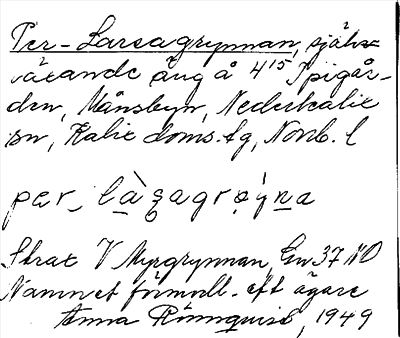 Per-Larsagrynnan, själv-
växande äng å 4¹⁵ Spigår-
den, Månsbyn, Nederkalix
sn, Kalix doms. tg, Norrb. l
per, làsagrøýna
Strax V Myrgrynnan, Gn 37 NO
Namnet förmodl. eft ägare
Anna Rönnquist, 1949